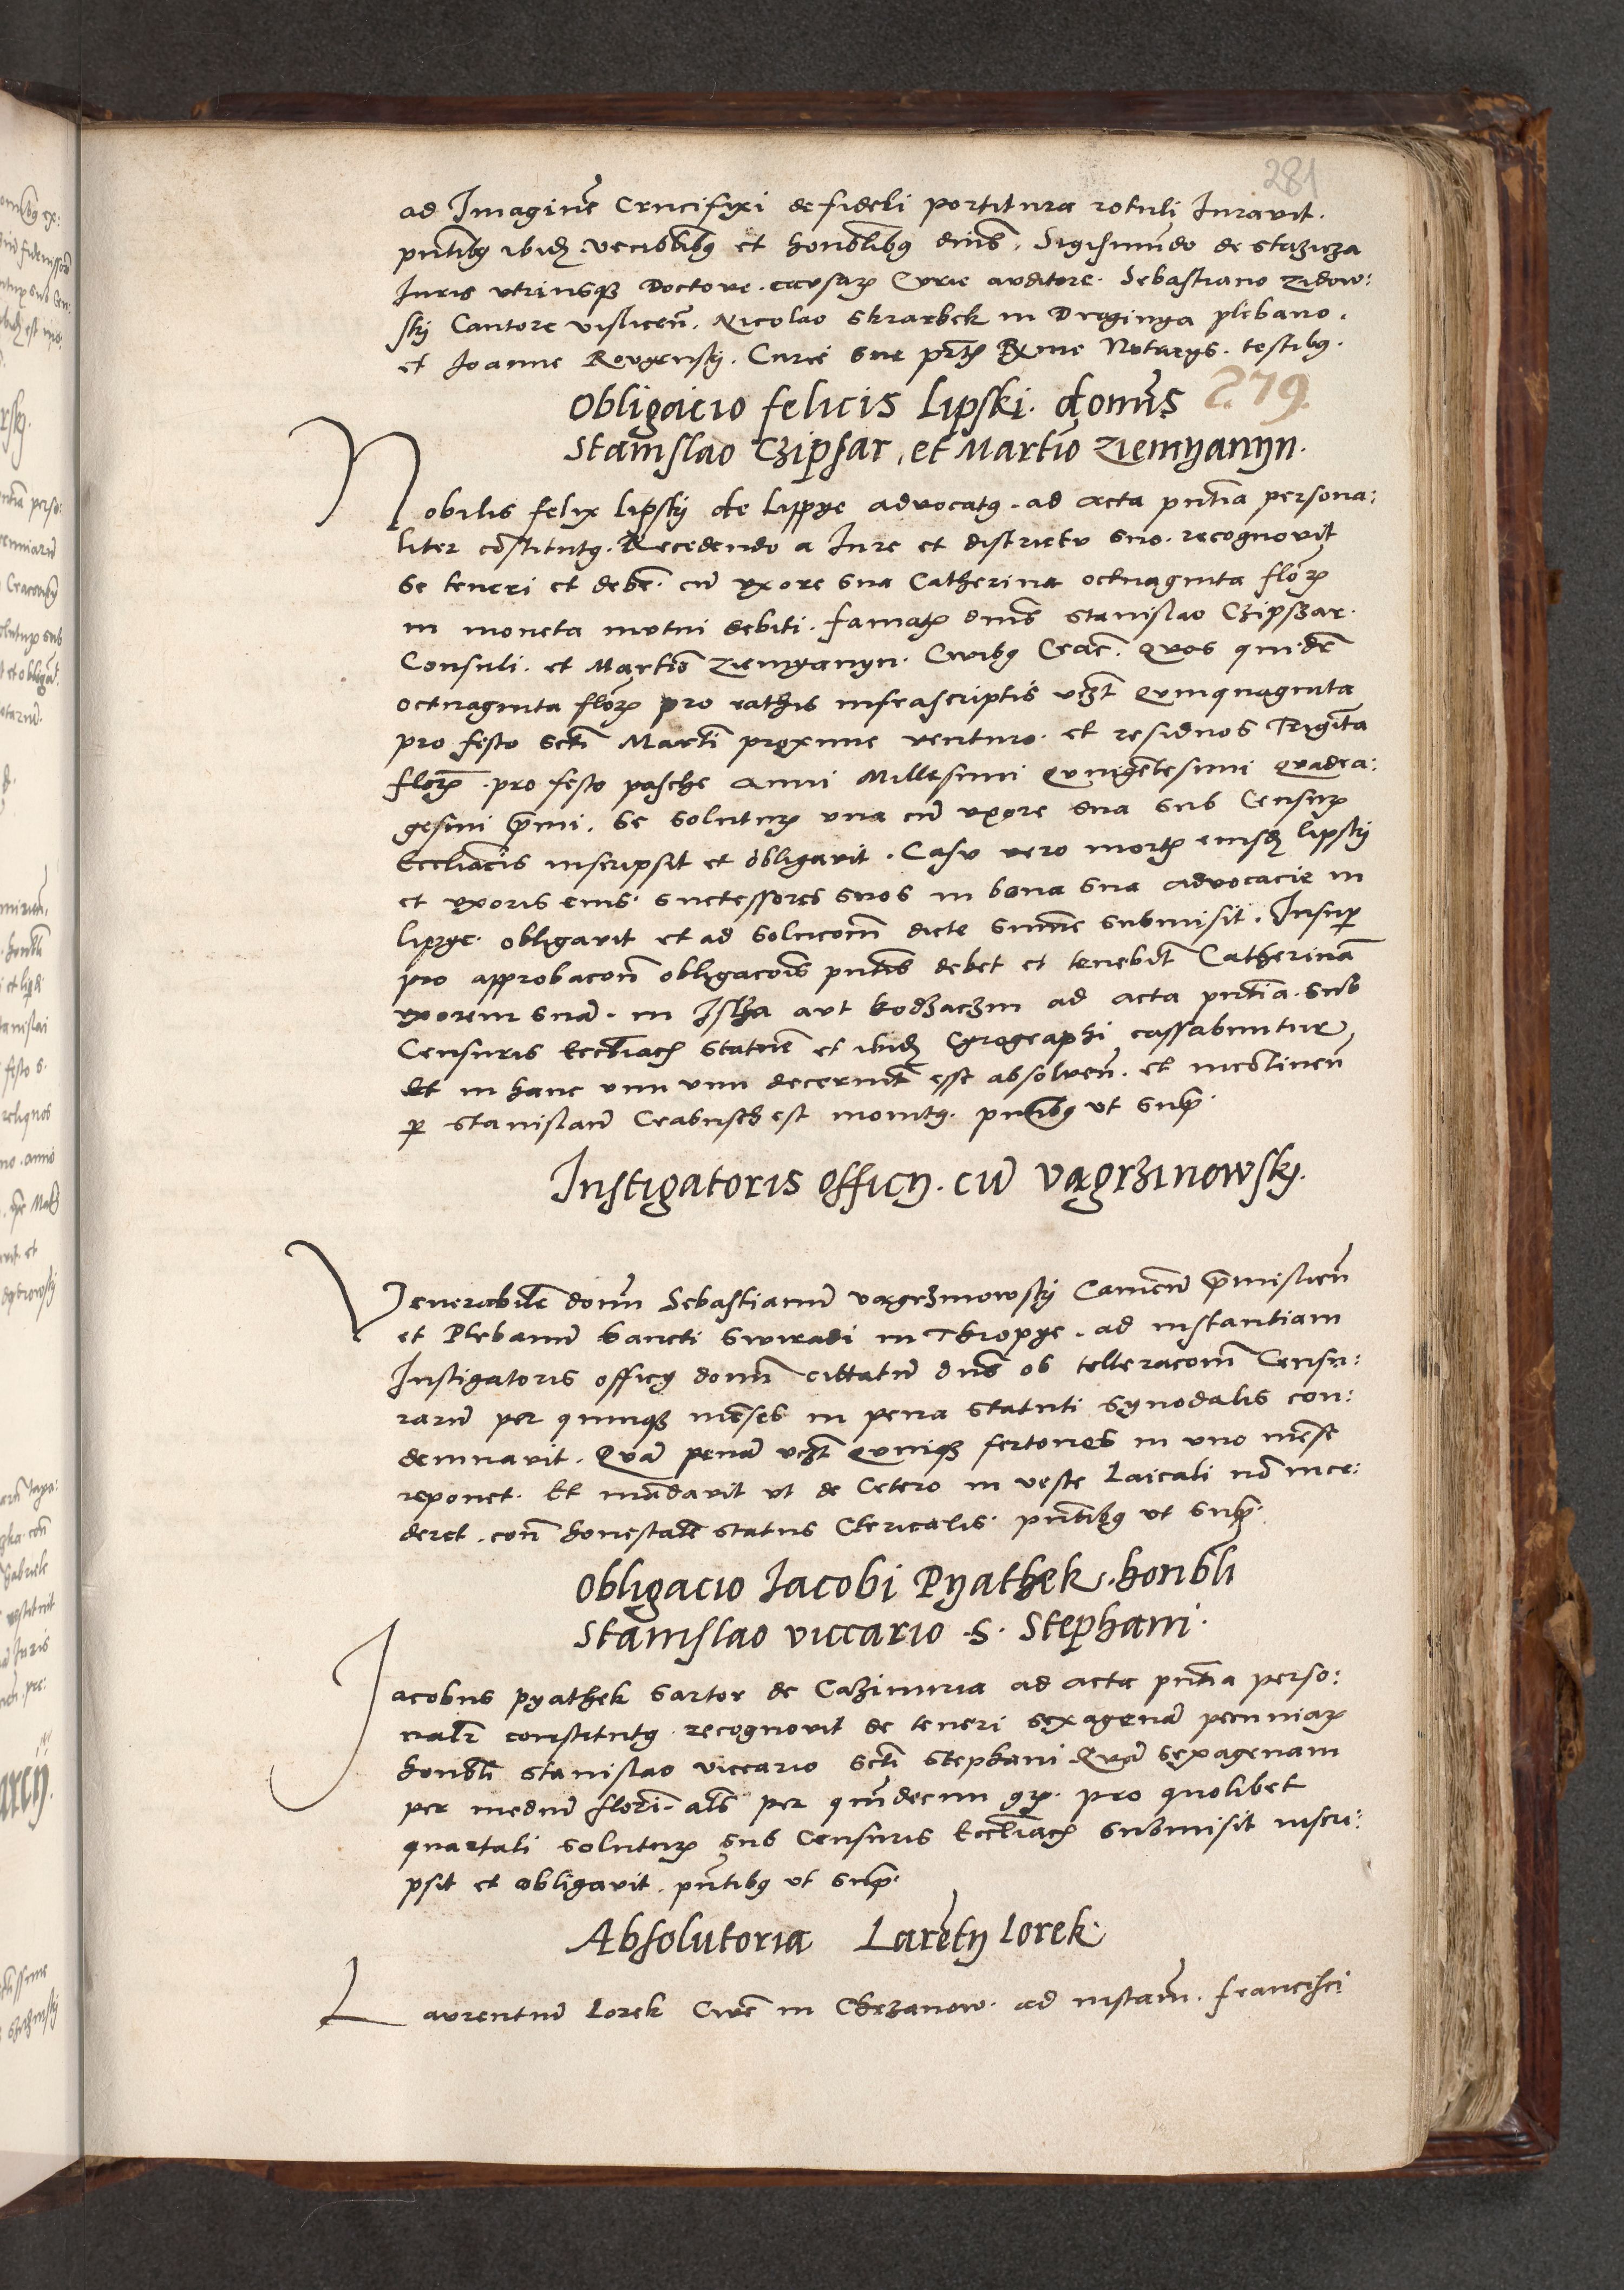 281
ad Imagine͂ Crucifixi de fideli portitura rotuli Iuravit.
pn̄tibꝫ ibidꝫ venelibꝫ et honblibꝫ dnis. Sigismundo de stazicza
Iuris utriusqꝫ Doctore. causaꝝ Curie auditore. Sebastiano zidow:
skÿ Cantore vislicen̄. Nicolao skrarbek in Droginya plebano.
et Ioanne Rougenskÿ. Curie sue Notarÿs. testibꝫ.
Obligacio felicis Lipski. domis 279.
Stanislao Czipsar, et Martino ziemyanÿn.
Nobilis felix lipskÿ de Lippye advocatꝫ. ad acta pn̄tia persona:
liter cōstitutꝫ. Recedendo a Iure et districtu suo. recognovit
se teneri et deber̄. cū uxore sua Catherina octuaginta floꝝ
in moneta mutui debiti. famatꝫ dnis stanislao Czipszar.
Consuli. et Martino ziemyanyn. Civibꝫ Crac̄. Quos quidē
octuaginta floꝝ pro rathis infrascriptis vꝫt Quinquaginta
pro festo scti Martī proxime venturo. et residuos Triginta
floꝝ. pro festo pasche anni Millesimi Quingētesimi Quadra:
gesimi p̄mi. Se soluturꝫ una cū uxore sua sub Censurꝫ
Eccliacis inscripsit et obligavit. Casu vero mortꝫ eiusdꝫ lipskÿ
et uxoris eius. successores suos in bona sua advocacie in
lipye. obligavit et ad solucom̄ dicte summe submisit. Insup̄
pro approbacon̄ obligacois pn̄tis debet et tenebit̄ Catherinā
uxorem suā. in Ilza aut kodzaczin ad acta pn̄tia. sub
Censuris Eccliacꝫ statuē et ibidꝫ Cÿrographi cassabuntur
Et in hanc unu unu decernit esse absolven̄. et incōtinen̄
p̱ stanislaū Crabusch est monitꝫ. pn̄tibꝫ ut sup̄.
Instigatoris officÿ. cū Vagrzinowskÿ.
Venerabilē donū Sebastianū vagrzinowskÿ Canōcū p̄mislien̄
et Plebanū Sancti Swiradi in Thropye. ad instantiam
Instigatoris officÿ domī cittatū dns ob tolleracom̄ Censu:
rarū per quinqꝫ mēses in pena statuti synodalis con:
demnavit. Quā penā vꝫt Quinqꝫ fertones in uno mēse
reponet. Et mādavit ut de Cetero in veste Laicali nō ince:
deret. con̄ honestatē status Clericalis. pn̄tibꝫ ut sup̄.
Obligacio Iacobi Pÿathek. honbli
Stanislao viccario .S. Stephani.
Iacobus pyathek sartor de Cazimiria ad acta pn̄tia perso:
nalr̄ constitutꝫ recognovit se teneri sexagenā pecuniaꝝ
honbli stanislao viccario scti Stephani. Quā sexagenam
per mediū flori. als per quīdecim gꝝ. pro quolibet
quartali soluturꝫ sub Censuris Eccliacꝫ submisit inscri:
psit et obligavit. pn̄tibꝫ ut sup̄.
Absolutoria Larētÿ Lorek.
Laurentiū Lorek Civē in Chrzanow. ad instam̄. francisci